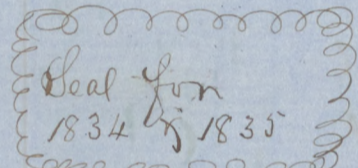 Seal for
1834 & 1835